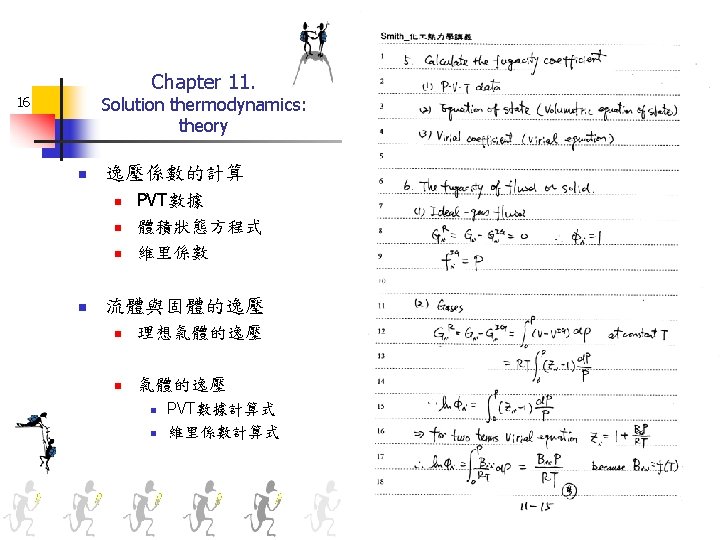 Chapter 11.
16
Solution thermodynamics:
theory
逸壓係數的計算
PVT數據
體積狀態方程式
維里係數
流體與固體的逸壓
理想氣體的逸壓
氣體的逸壓
PVT數據計算式
維里係數計算式
Smith_化工熱力學講義
1 5. Calculate the fugacity coefficient
2 (1) P-V-T data
3 (2) Equation of state (Volumetric equation of state)
4 (3) Virial coefficient (Virial equation)
5
6 6. The fugacity of fluid or solid.
7 (1) Ideal-gas fluid
8 G_n^R = G_n - G_n^{ig} = 0 ∴ ϕ_n = 1
9 f_n^{ig} = P
11 (2) Gases
12 G_n^R = G_n - G_n^{ig} = ∫_0^P (V - V^{ig}) dP at constant T
13 = RT ∫_0^P (Z_n - 1) dP/P
15 ∴ ln ϕ_n = ∫_0^P (Z_n - 1) dP/P
16 ⇒ for two terms Virial equation Z_n = 1 + BP/RT
17 ∴ ln ϕ_n = ∫_0^P B_{nn}/RT dP = B_{nn}P/RT because B_{nn} = f(T)
18
11-15